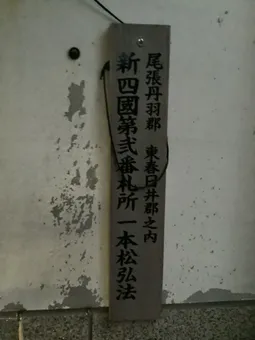 尾張丹羽郡 東春日井郡之内
新四國第弐番札所 一本松弘法